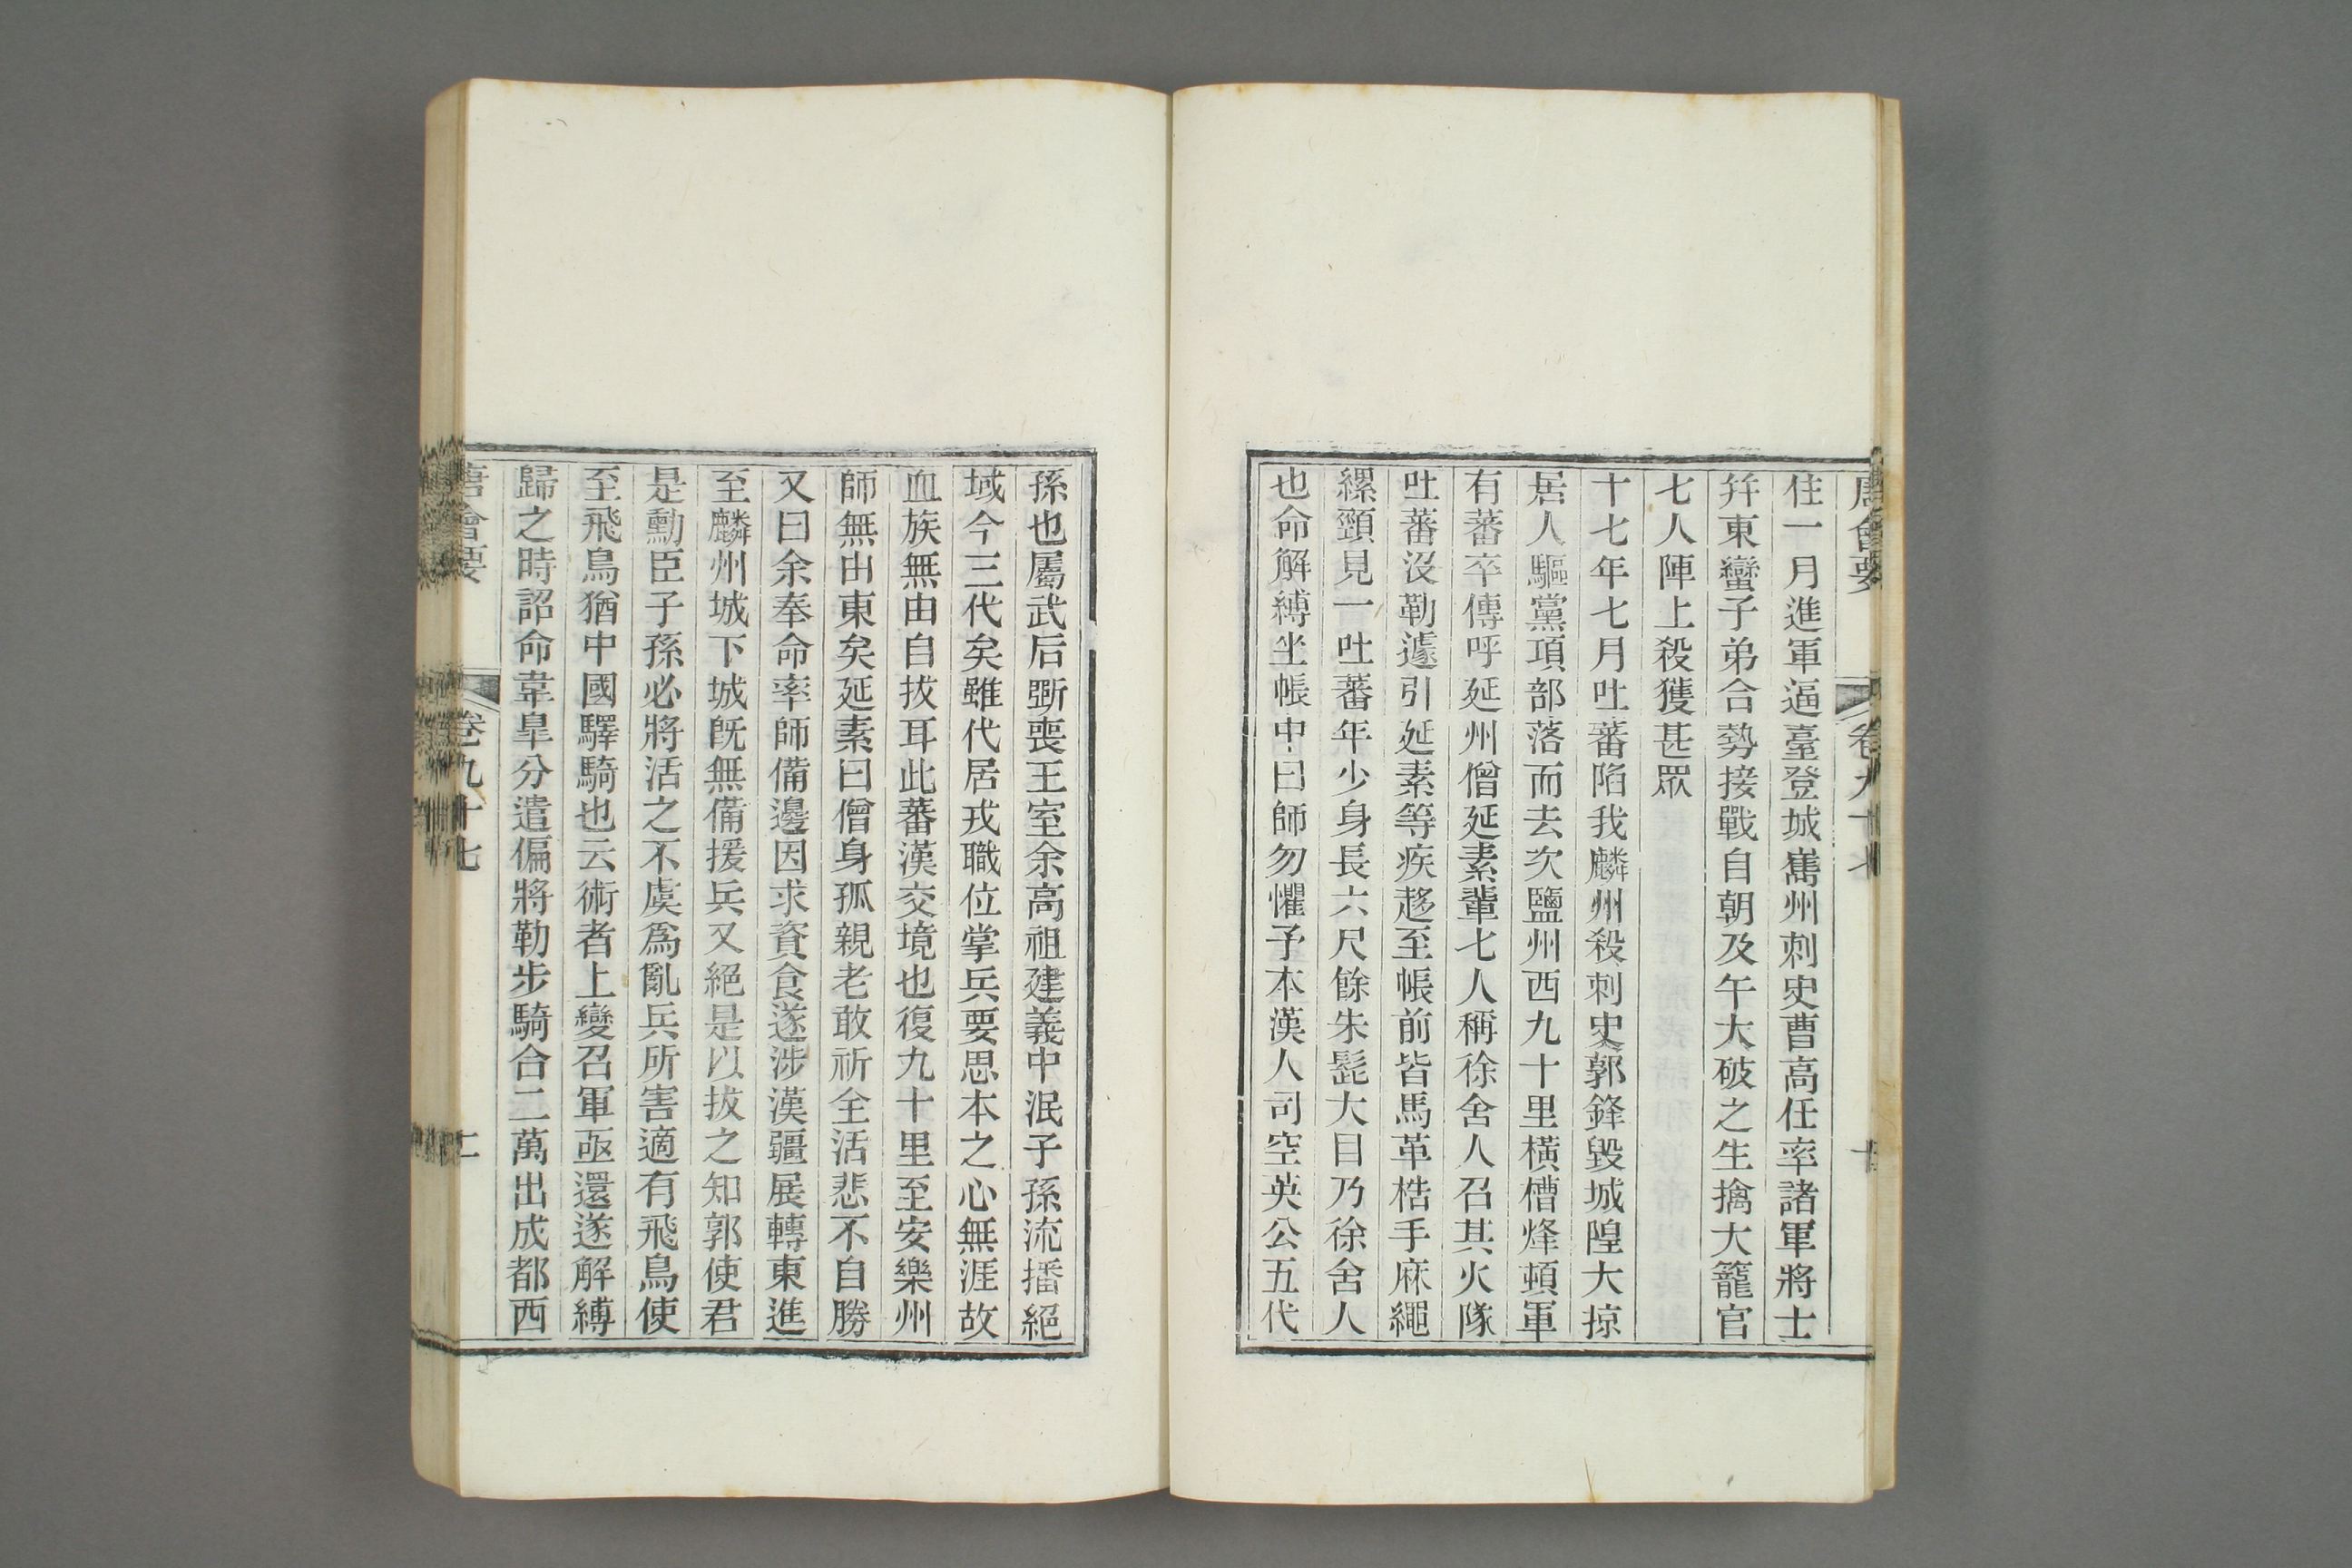 唐會要 卷九十七 十
住一月進軍逼臺登城巂州刺史曹高任率諸軍將士
幷東蠻子弟合勢接戰自朝及午大破之生擒大籠官
七人陣上殺獲甚眾
十七年七月吐蕃陷我麟州殺刺史郭鋒毀城隍大掠
居人驅黨項部落而去次鹽州西九十里橫槽烽頓軍
有蕃卒傳呼延州僧延素輩七人稱徐舍人召其火隊
吐蕃沒勒遽引延素等疾趍至帳前皆馬革梏手麻繩
縲頸見一吐蕃年少身長六尺餘朱髭大目乃徐舍人
也命解縛坐帳中曰師勿懼予本漢人司空英公五代
孫也屬武后斲喪王室余高祖建義中泯子孫流播絕
域今三代矣雖代居戎職位掌兵要思本之心無涯故
血族無由自拔耳此蕃漢交境也復九十里至安樂州
師無由東矣延素曰僧身孤親老敢祈全活悲不自勝
又曰余奉命率師備邊因求資食遂涉漢疆展轉東進
至麟州城下城旣無備援兵又絕是以拔之知郭使君
是勳臣子孫必將活之不虞爲亂兵所害適有飛鳥使
至飛鳥猶中國驛騎也云術者上變召軍亟還遂解縛
歸之時詔命韋皐分遣偏將勒步騎合二萬出成都西
唐會要 卷九十七